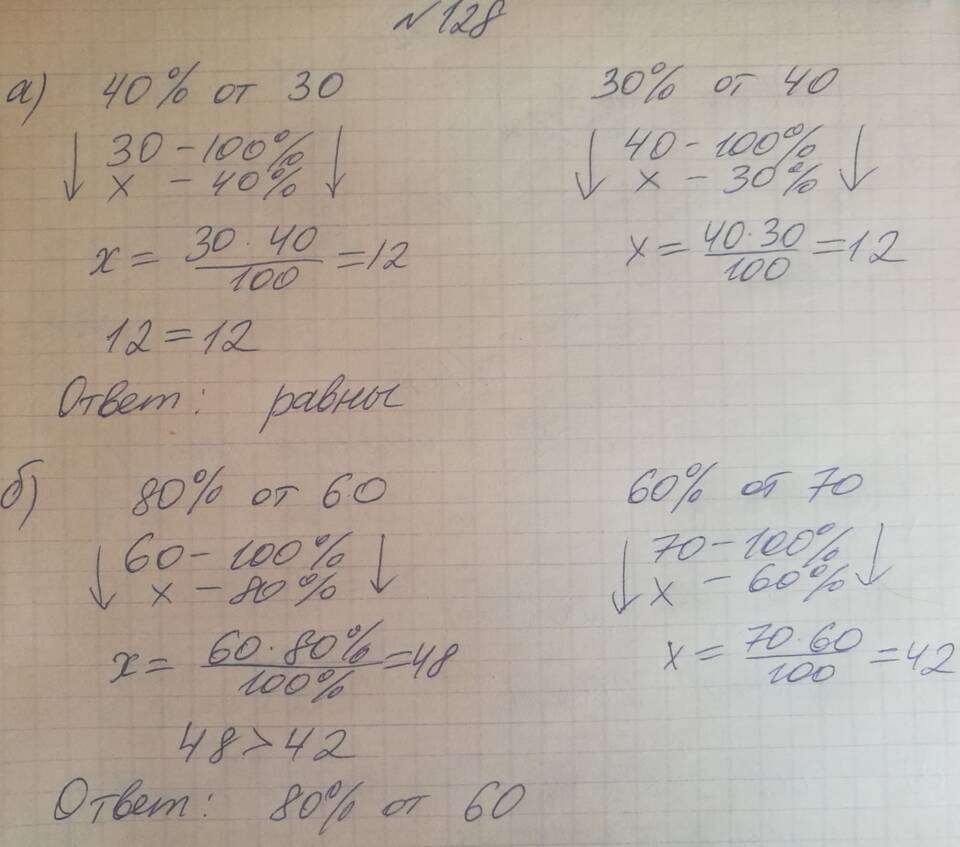 №128
а) 40% от 30 30% от 40
↓ 30 - 100% ↓ ↓ 40 - 100% ↓
x - 40% x - 30%
x = 30·40/100 = 12 x = 40·30/100 = 12
12 = 12
Ответ: равны
б) 80% от 60 60% от 70
↓ 60 - 100% ↓ ↓ 70 - 100% ↓
x - 80% x - 60%
x = 60·80%/100% = 48 x = 70·60/100 = 42
48 > 42
Ответ: 80% от 60